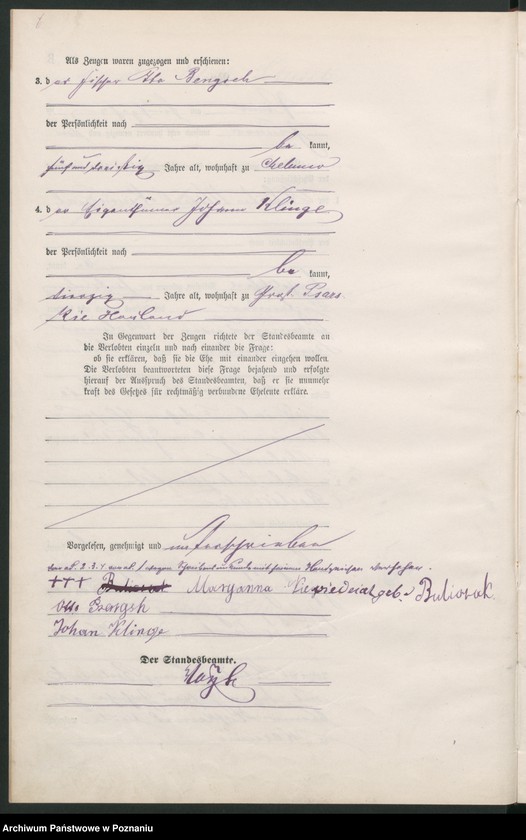 Als Zeugen waren zugezogen und erschienen:
3. der Fischer Otto Bengsch
der Persönlichkeit nach
bekannt,
fünfunddreißig Jahre alt, wohnhaft zu Chelmno
4. der Eigenthümer Johann Klinge
der Persönlichkeit nach
bekannt,
vierzig Jahre alt, wohnhaft zu Groß Psars
kie Hauland
In Gegenwart der Zeugen richtete der Standesbeamte an
die Verlobten einzeln und nach einander die Frage:
ob sie erklären, daß sie die Ehe mit einander eingehen wollen.
Die Verlobten beantworteten diese Frage bejahend und erfolgte
hierauf der Ausspruch des Standesbeamten, daß er sie nunmehr
kraft des Gesetzes für rechtmäßig verbundene Eheleute erkläre.
Vorgelesen, genehmigt und unterschrieben
von ad. 2. 3. 4 von ad. 1 wegen Schreibensunkunde mit seinem Handzeichen versehen.
+++ Maryanna geb. Buliosak
Otto Bengsh
Johan Klinge
Der Standesbeamte.
Archiwum Państwowe w Poznaniu